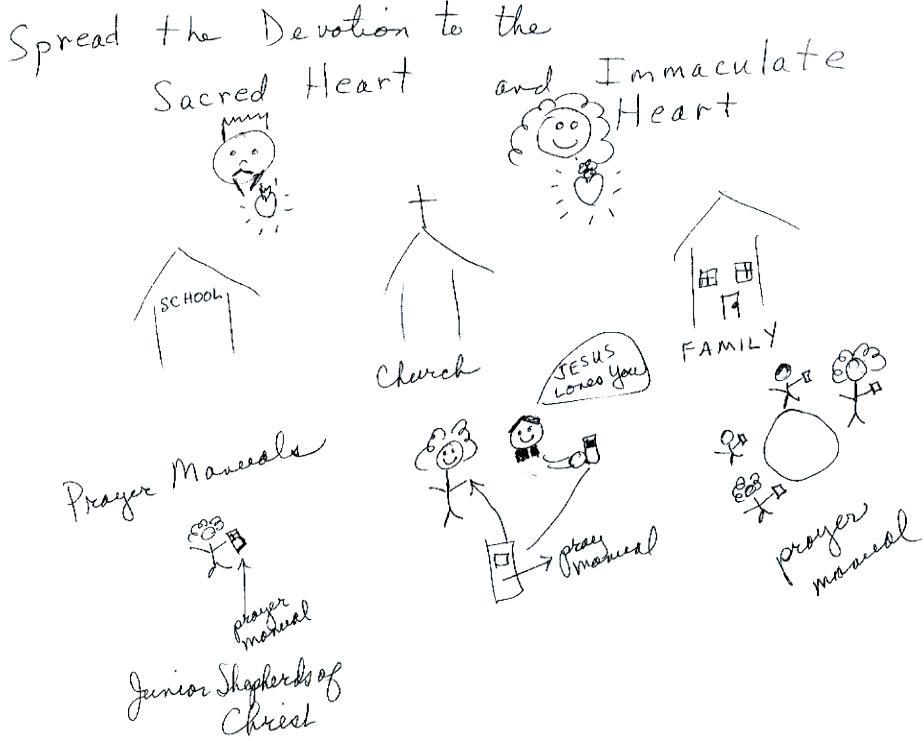 Spread the Devotion to the
Sacred Heart and Immaculate
Heart
SCHOOL
Church
FAMILY
JESUS
Loves You
Prayer Manuals
pray
manual
prayer
manual
prayer
manual
Junior Shepherds of
Christ